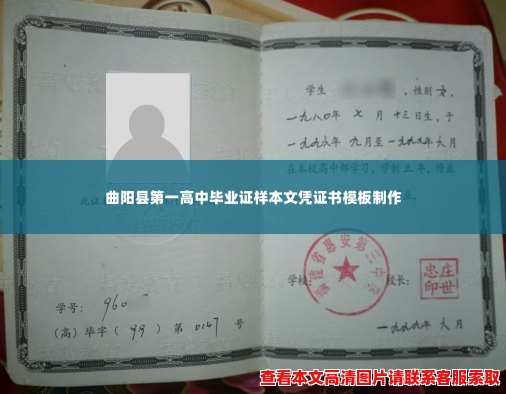 此证
学号: 960
(高)毕字( 99 )第 0147 号
学生 ,性别 女,
一九八〇年 七 月 十三日生,于
一九九六年 九月至一九九九年六月
在本校高中部学习,学制三年,修业
曲阳县第一高中毕业证样本文凭证书模板制作
福建省惠安第三中学
学校: 校长:
庄世忠印
一九九九年 六 月
查看本文高清图片请联系客服索取